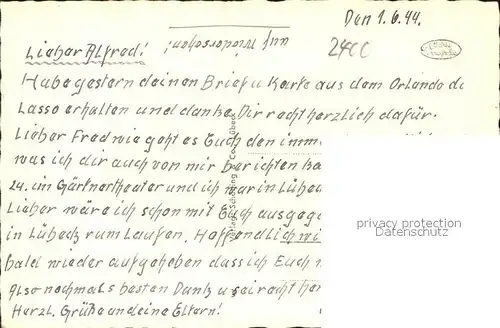 Den 1.6.44.
auf Wiedersehen!
Lieber Alfred!
24CC
Habe gestern deinen Brief u Karte aus dem Orlando di
Lasso erhalten und danke Dir recht herzlich dafür.
Lieber Fred wie geht es Euch den imm
was ich dir auch von mir berichten ka
24. im Gärtnertheater und ich war in Lübec
Lieber wäre ich schon mit Euch ausgega
in Lübeck rum Laufen. Hoffendlich wi
bald wieder aufgehoben dass ich Euch
also nochmals besten Dank u sei recht her
Herzl. Grüße an deine Eltern!
Schöning & Co., Lübeck
privacy protection
Datenschutz